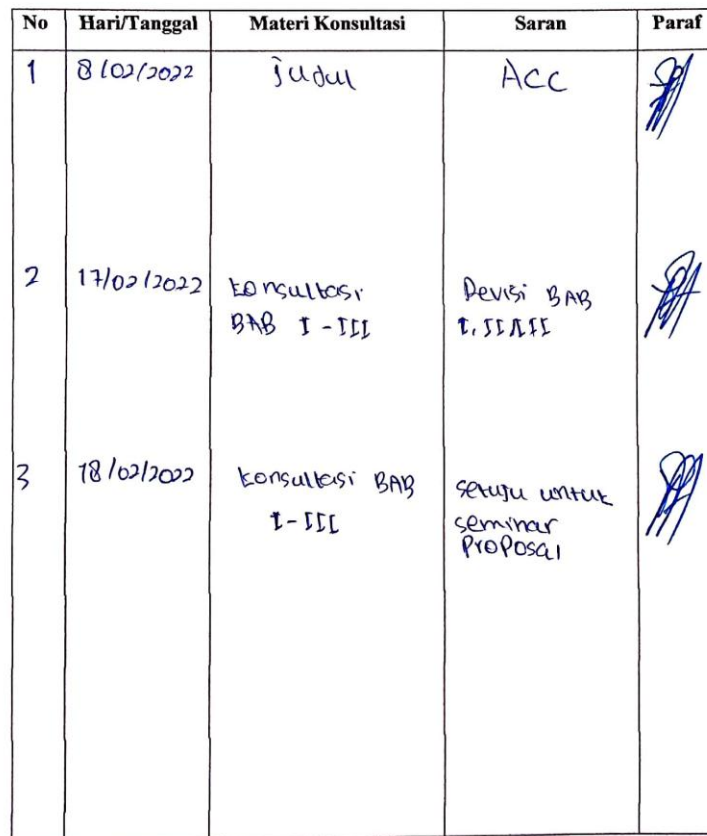 No Hari/Tanggal Materi Konsultasi Saran Paraf
1 8/02/2022 Judul ACC
2 17/02/2022 konsultasi Revisi BAB
BAB I - III I, II, III
3 18/02/2022 konsultasi BAB setuju untuk
I - III seminar
Proposal